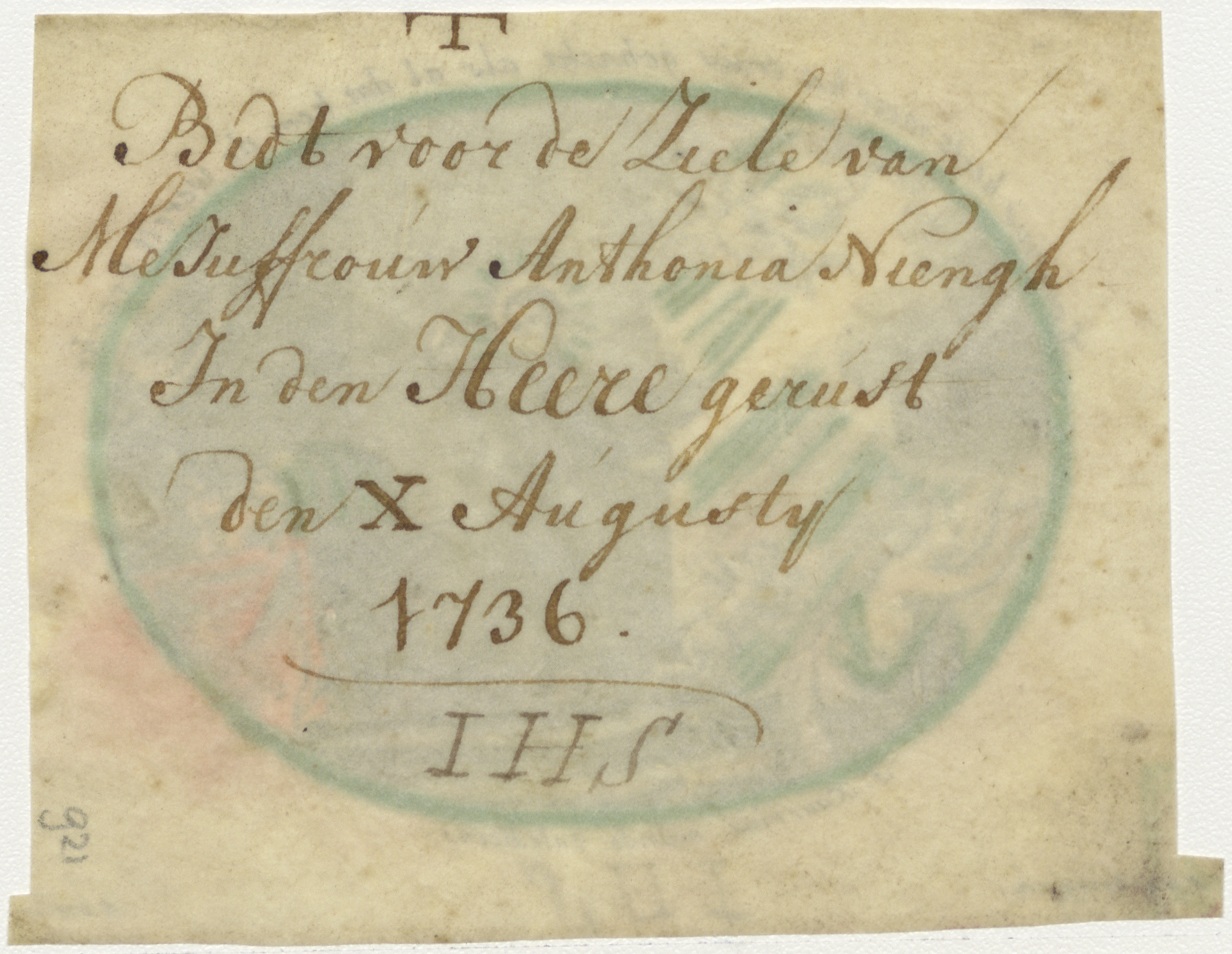 Bidt voor de Ziele van
MeJuffrouw Anthonia Niengh
In den Heere gerust
den X Augusty
1736.
IHS
921